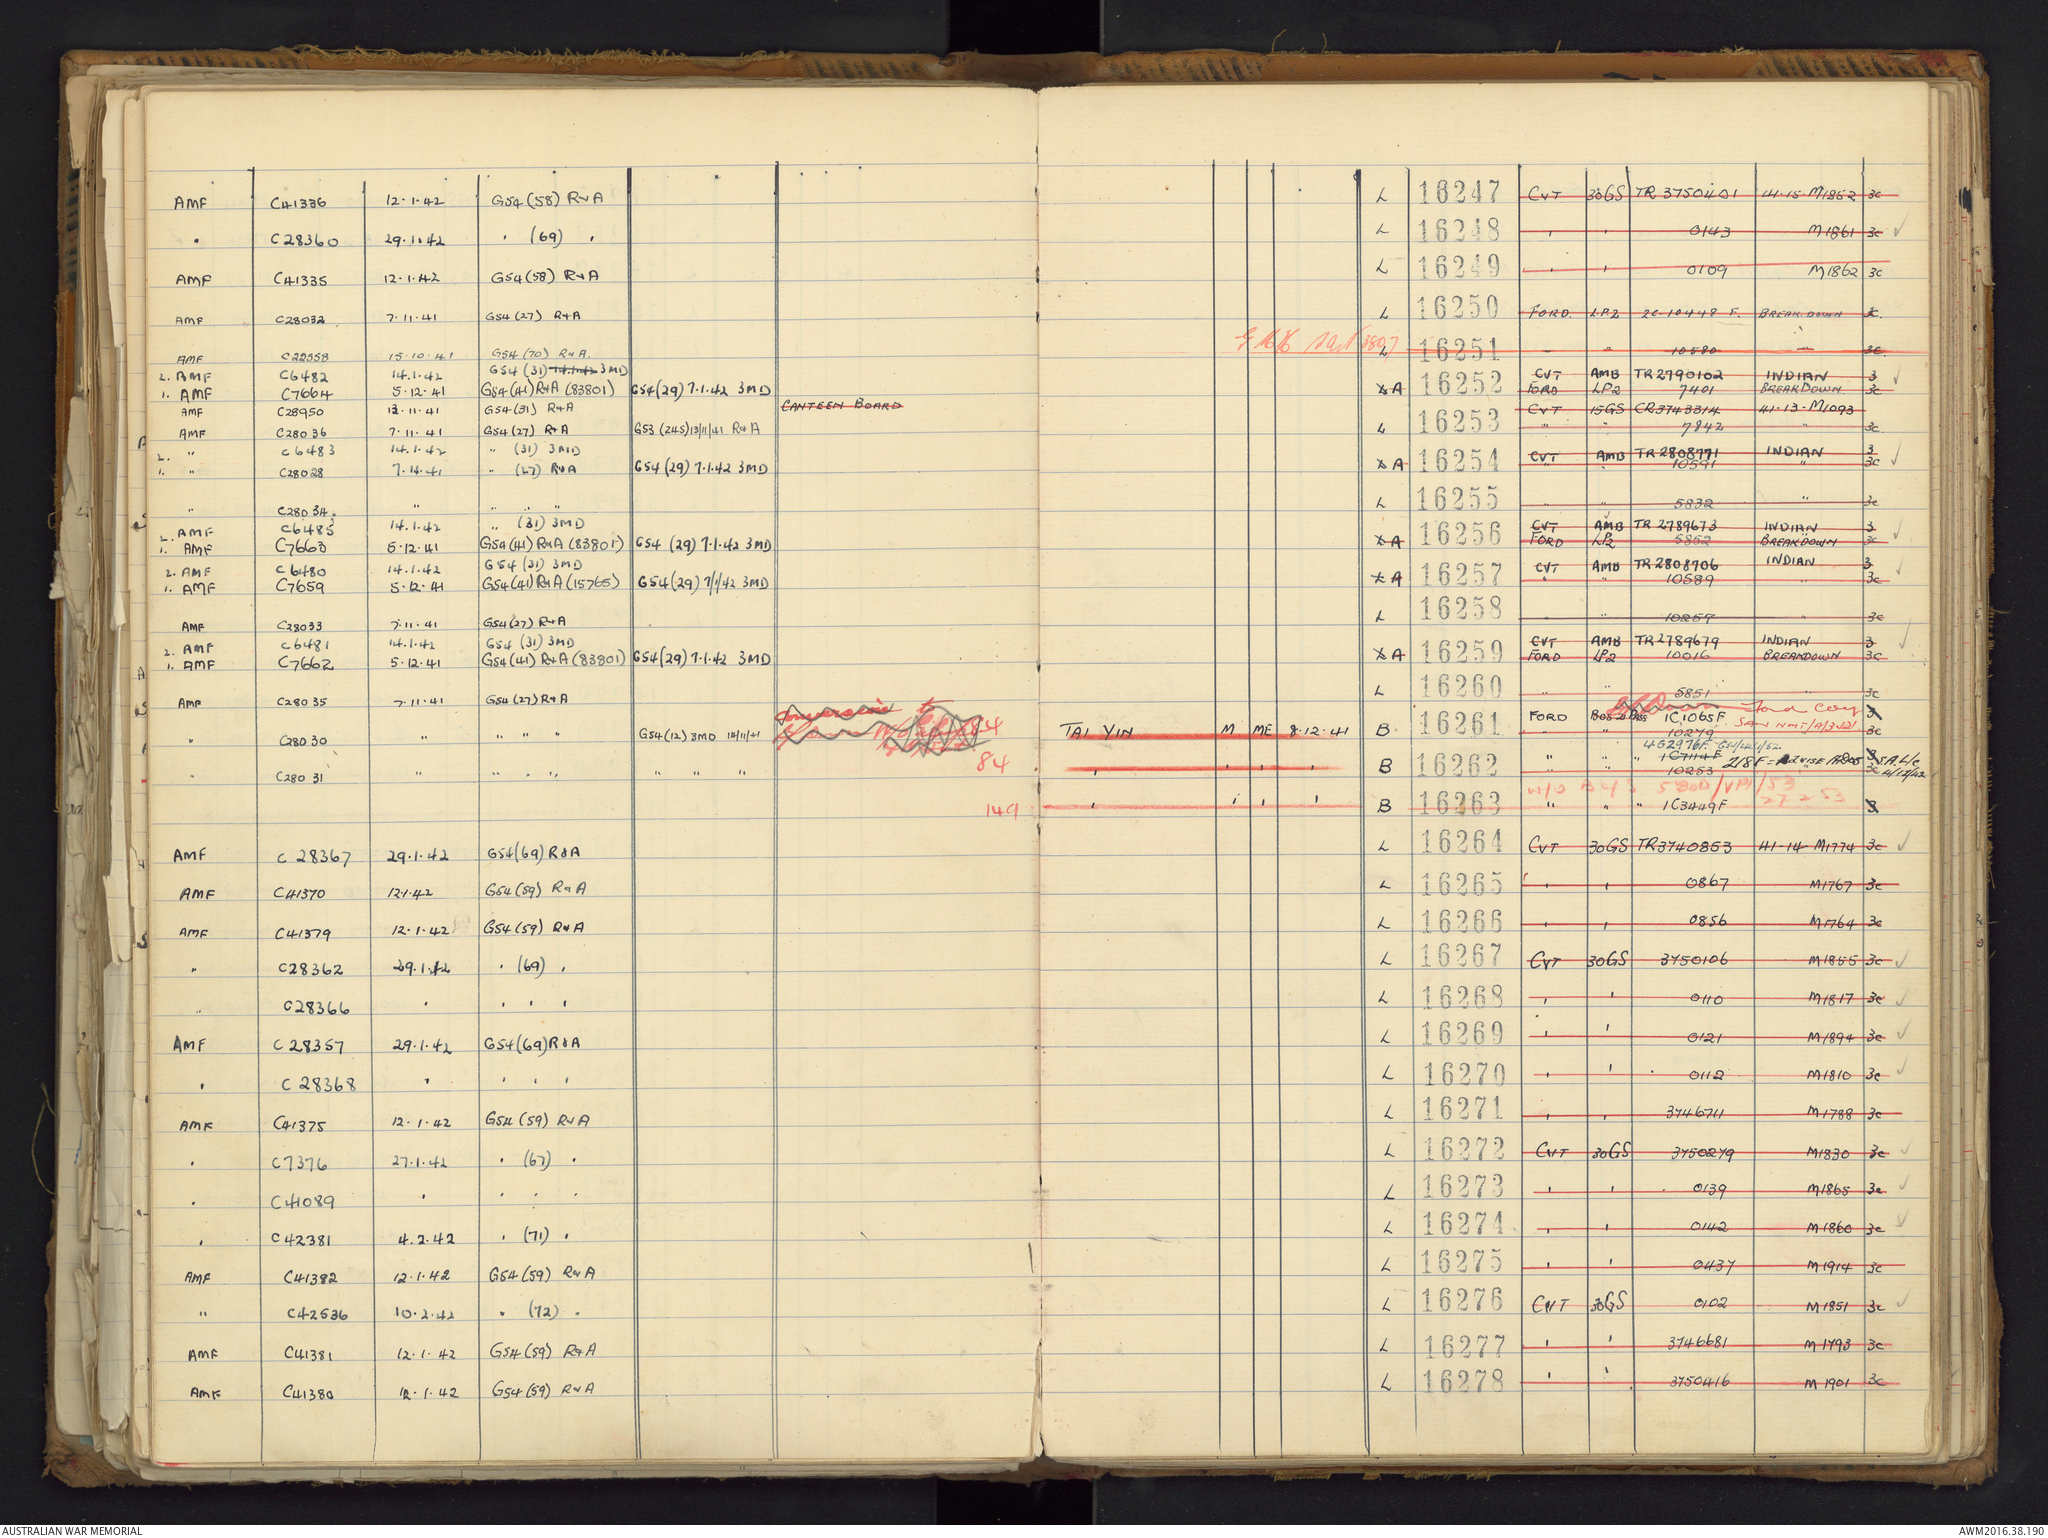 AMF C41336 12.1.42 G54 (58) R&A
" C28360 29.1.42 " (69) "
AMF C41335 12.1.42 G54 (58) R&A
AMF C28032 7.11.41 G54 (27) R&A
AMF C22558 15.10.41 G54 (70) R&A.
2. AMF C6482 14.1.42 G54 (31) 14.1.42 3MD
1. AMF C7664 5.12.41 G54 (41) R&A (83801) G54 (29) 7.1.42 3MD
AMF C28950 12.11.41 G54 (31) R&A CANTEEN BOARD
AMF C28036 7.11.41 G54 (27) R&A G53 (245) 13/11/41 R&A
2. " C6483 14.1.42 " (31) 3MD
1. " C28028 7.11.41 " (27) R&A G54 (29) 7.1.42 3MD
" C28034. " " " "
2. AMF C6485 14.1.42 " (31) 3MD
1. AMF C7663 5.12.41 G54 (41) R&A (83801) G54 (29) 7.1.42 3MD
2. AMF C6480 14.1.42 G54 (31) 3MD
1. AMF C7659 5.12.41 G54 (41) R&A (15765) G54 (29) 7/1/42 3MD
AMF C28033 7.11.41 G54 (27) R&A
2. AMF C6481 14.1.42 G54 (31) 3MD
1. AMF C7662 5.12.41 G54 (41) R&A (83801) G54 (29) 7.1.42 3MD
AMF C28035 7.11.41 G54 (27) R&A
" C28030 " " " " G54 (12) 3MD 11/11/41
" C28031 " " " " " " " 84
149
AMF C28367 29.1.42 G54 (69) R&A
AMF C41370 12.1.42 G54 (59) R&A
AMF C41379 12.1.42 G54 (59) R&A
" C28362 29.1.42 " (69) "
" C28366 " " " "
AMF C28357 29.1.42 G54 (69) R&A
" C28368 " " " "
AMF C41375 12.1.42 G54 (59) R&A
" C7376 27.1.42 " (67) "
" C41089 " " " "
" C42381 4.2.42 " (71) "
AMF C41382 12.1.42 G54 (59) R&A
" C42536 10.2.42 " (72) "
AMF C41381 12.1.42 G54 (59) R&A
AMF C41380 12.1.42 G54 (59) R&A
L 16247 CVT 30GS TR 3750401 41-15-M1852 3c
L 16248 " " 0143 M1861 3c
L 16249 " " 0109 M1862 3c
L 16250 FORD. LP2 2C-10448 F. BREAKDOWN 3c.
L 16251 " " 10580 " 3c.
CVT AMB TR2790102 INDIAN 3
A 16252 FORD LP2 7401 BREAKDOWN 3c
CVT 15GS CR3743314 41-13-M1093
L 16253 " " 7842 3c.
CVT AMB TR2808771 INDIAN 3
A 16254 " " 10591 " 3c
L 16255 " " 5832 " 3c
CVT AMB TR2789673 INDIAN 3
A 16256 FORD LP2 5852 BREAKDOWN 3c
CVT AMB TR2808706 INDIAN 3
A 16257 " " 10589 " 3c
L 16258 " " 10257 " 3c
CVT AMB TR2789679 INDIAN 3
A 16259 FORD LP2 10016 BREAKDOWN 3c
L 16260 " " 5851 " 3c
FORD 1C1065F
TAI YIN M ME 8.12.41 B 16261 10279 3c
4G2976F
" " " " B 16262 " " " 1C7114F
10253 3c
" " " " B 16263 " " " 1C3449F 3
L 16264 CVT 30GS TR3740853 41-14-M1774 3c
L 16265 " " 0867 M1767 3c
L 16266 " " 0856 M1764 3c
L 16267 CVT 30GS 3750106 M1855 3c
L 16268 " " 0110 M1817 3c
L 16269 " " 0121 M1894 3c
L 16270 " " 0112 M1810 3c
L 16271 " " 3746711 M1788 3c
L 16272 CVT 30GS 3750279 M1830 3c
L 16273 " " 0139 M1865 3c
L 16274 " " 0142 M1860 3c
L 16275 " " 0437 M1914 3c
L 16276 CVT 30GS 0102 M1851 3c
L 16277 " " 3746681 M1793 3c
L 16278 " " 3750416 M1901 3c
AUSTRALIAN WAR MEMORIAL
AWM2016.38.190